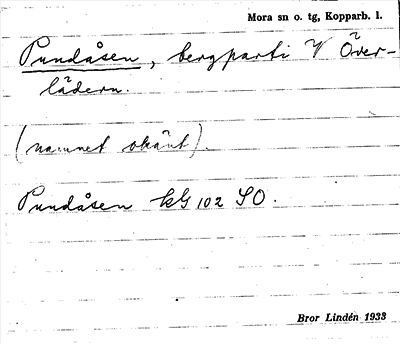 Mora sn o. tg, Kopparb. l.
Pundåsen, bergparti V Över-
lädern.
(namnet okänt).
Pundåsen kG 102 SO.
Bror Lindén 1933